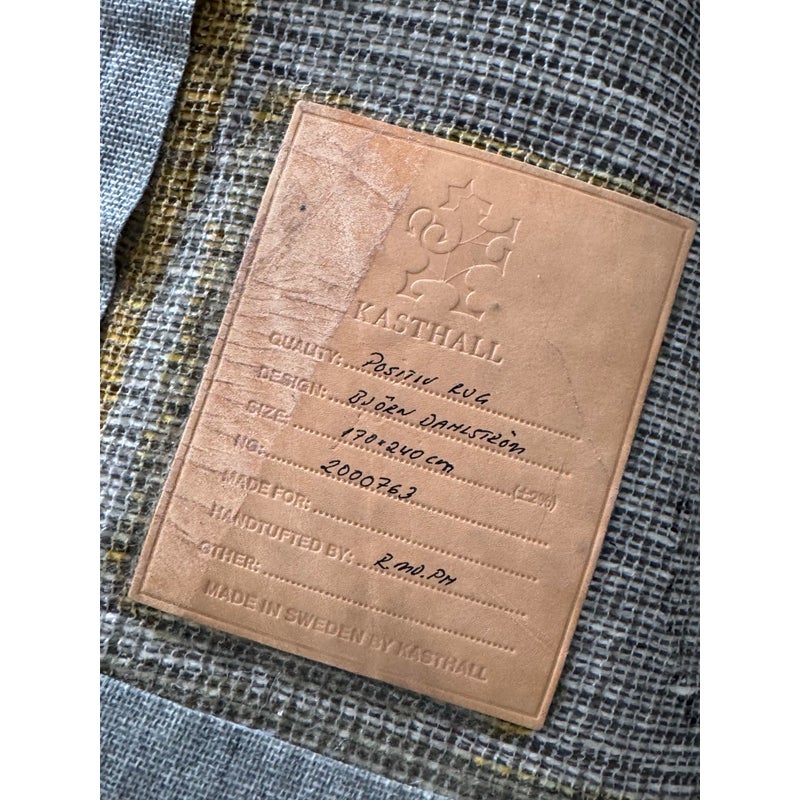 KASTHALL
QUALITY: POSITIV RUG
DESIGN: BJÖRN DAHLSTRÖM
SIZE: 170×240 cm (±2%)
NO: 2000763
MADE FOR:
HANDTUFTED BY: R.MD.PM
OTHER:
MADE IN SWEDEN BY KASTHALL